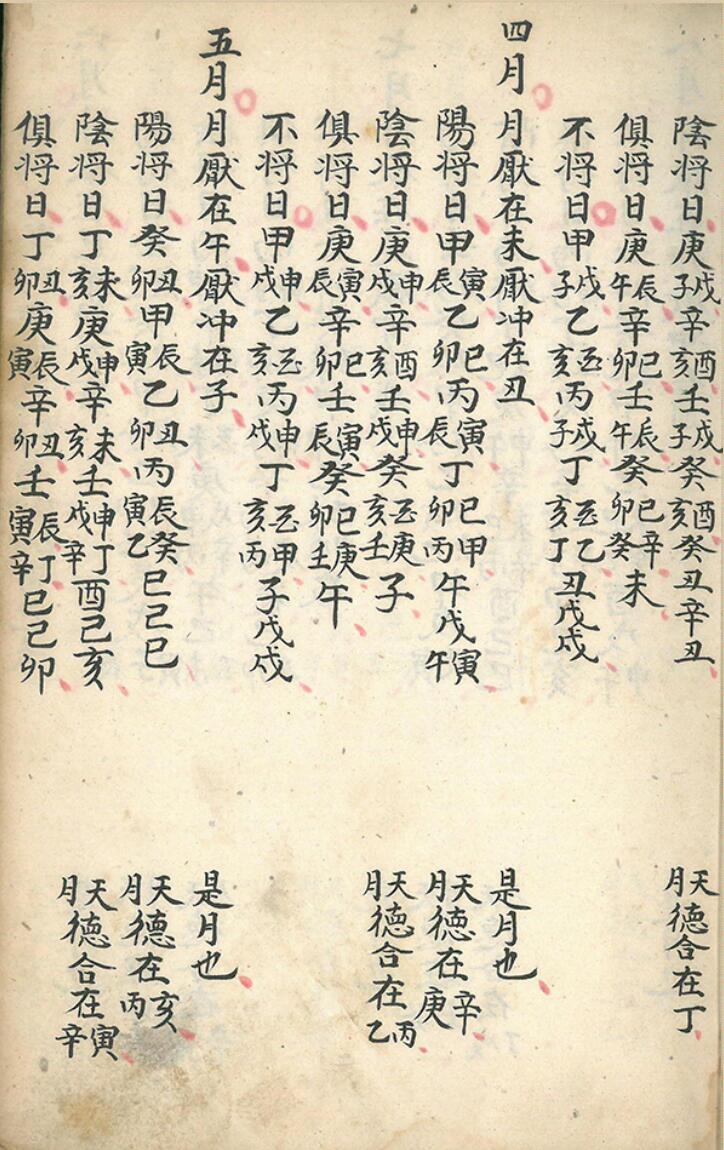 陰将日庚戌子辛酉亥壬戌子癸酉亥癸丑辛丑
天月德合在丁
俱将日庚辰午辛巳卯壬辰午癸巳卯辛癸未
不将日甲戌子乙酉亥丙戌子丁酉亥乙丁丑戊戌
四月 月厭在未厭冲在丑
是月也
陽将日甲寅辰乙巳卯丙寅辰丁巳卯甲丙午戊寅午
天月德在辛庚
陰将日庚申戌辛酉亥壬申戌癸酉亥庚壬子
天月德合在丙乙
俱将日庚寅辰辛巳卯壬寅辰癸巳卯庚壬午
不将日甲申戌乙酉亥丙申戌丁酉亥甲丙子戊戌
五月 月厭在午厭冲在子
是月也
陽将日癸丑卯甲辰寅乙丑卯丙辰寅癸乙巳己巳
天月德在亥丙
陰将日丁未亥庚申戌辛未亥壬申戌丁辛酉己亥
天月德合在寅辛
俱将日丁丑卯庚辰寅辛丑卯壬辰寅丁辛巳己卯